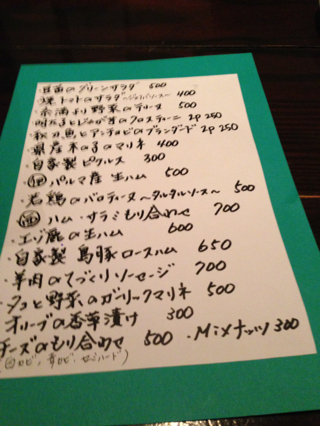 ・豆苗のグリーンサラダ 500
トマトのサラダ 400
野菜のテリーヌ 500
明太子とじゃが芋のクロスティーニ 2p 250
秋刀魚とアンチョビのブランダード 2p 250
・県産木の子のマリネ 400
・自家製ピクルス 300
・パルマ産 生ハム 500
・若鶏のバロティーヌ〜タルタルソース〜 500
・ハム・サラミもり合わせ 700
・エゾ鹿の生ハム 600
・自家製 島豚ロースハム 650
・羊肉のてづくりソーセージ 700
・タコと野菜のガーリックマリネ 500
・オリーブの香草漬け 300
チーズのもり合わせ 500 ・Mixナッツ 300
(白カビ、青カビ、セミハード)